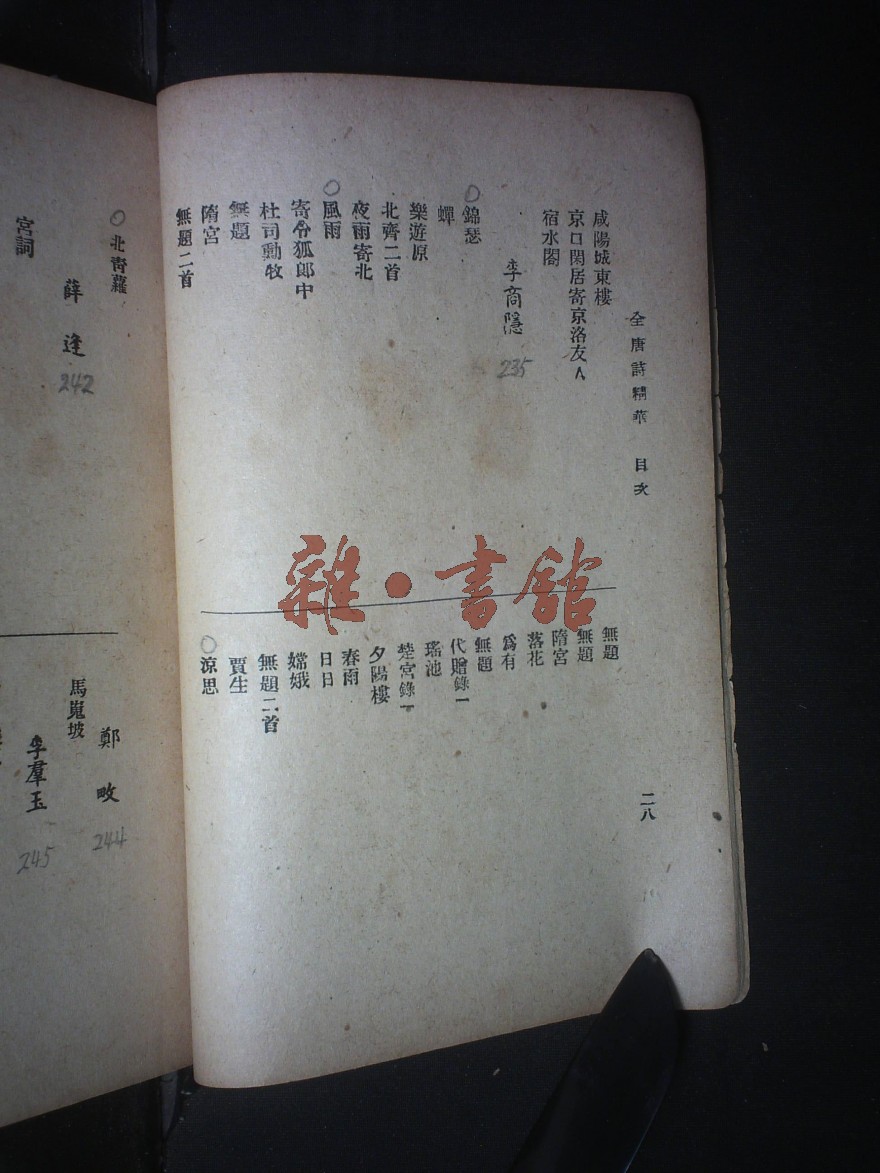 全唐詩精華　目次
咸陽城東樓
京口閑居寄京洛友人
宿水閣
李商隱
235
○錦瑟
蟬
樂遊原
北齊二首
夜雨寄北
○風雨
寄令狐郎中
杜司勳牧
無題
隋宮
無題二首
無題
無題
隋宮
落花
爲有
無題
代贈錄一
瑤池
楚宮錄一
夕陽樓
春雨
日日
嫦娥
無題二首
賈生
○涼思
二八
雜·書館
○北靑蘿
薛逢
242
宮詞
鄭畋
244
馬嵬坡
李羣玉
245